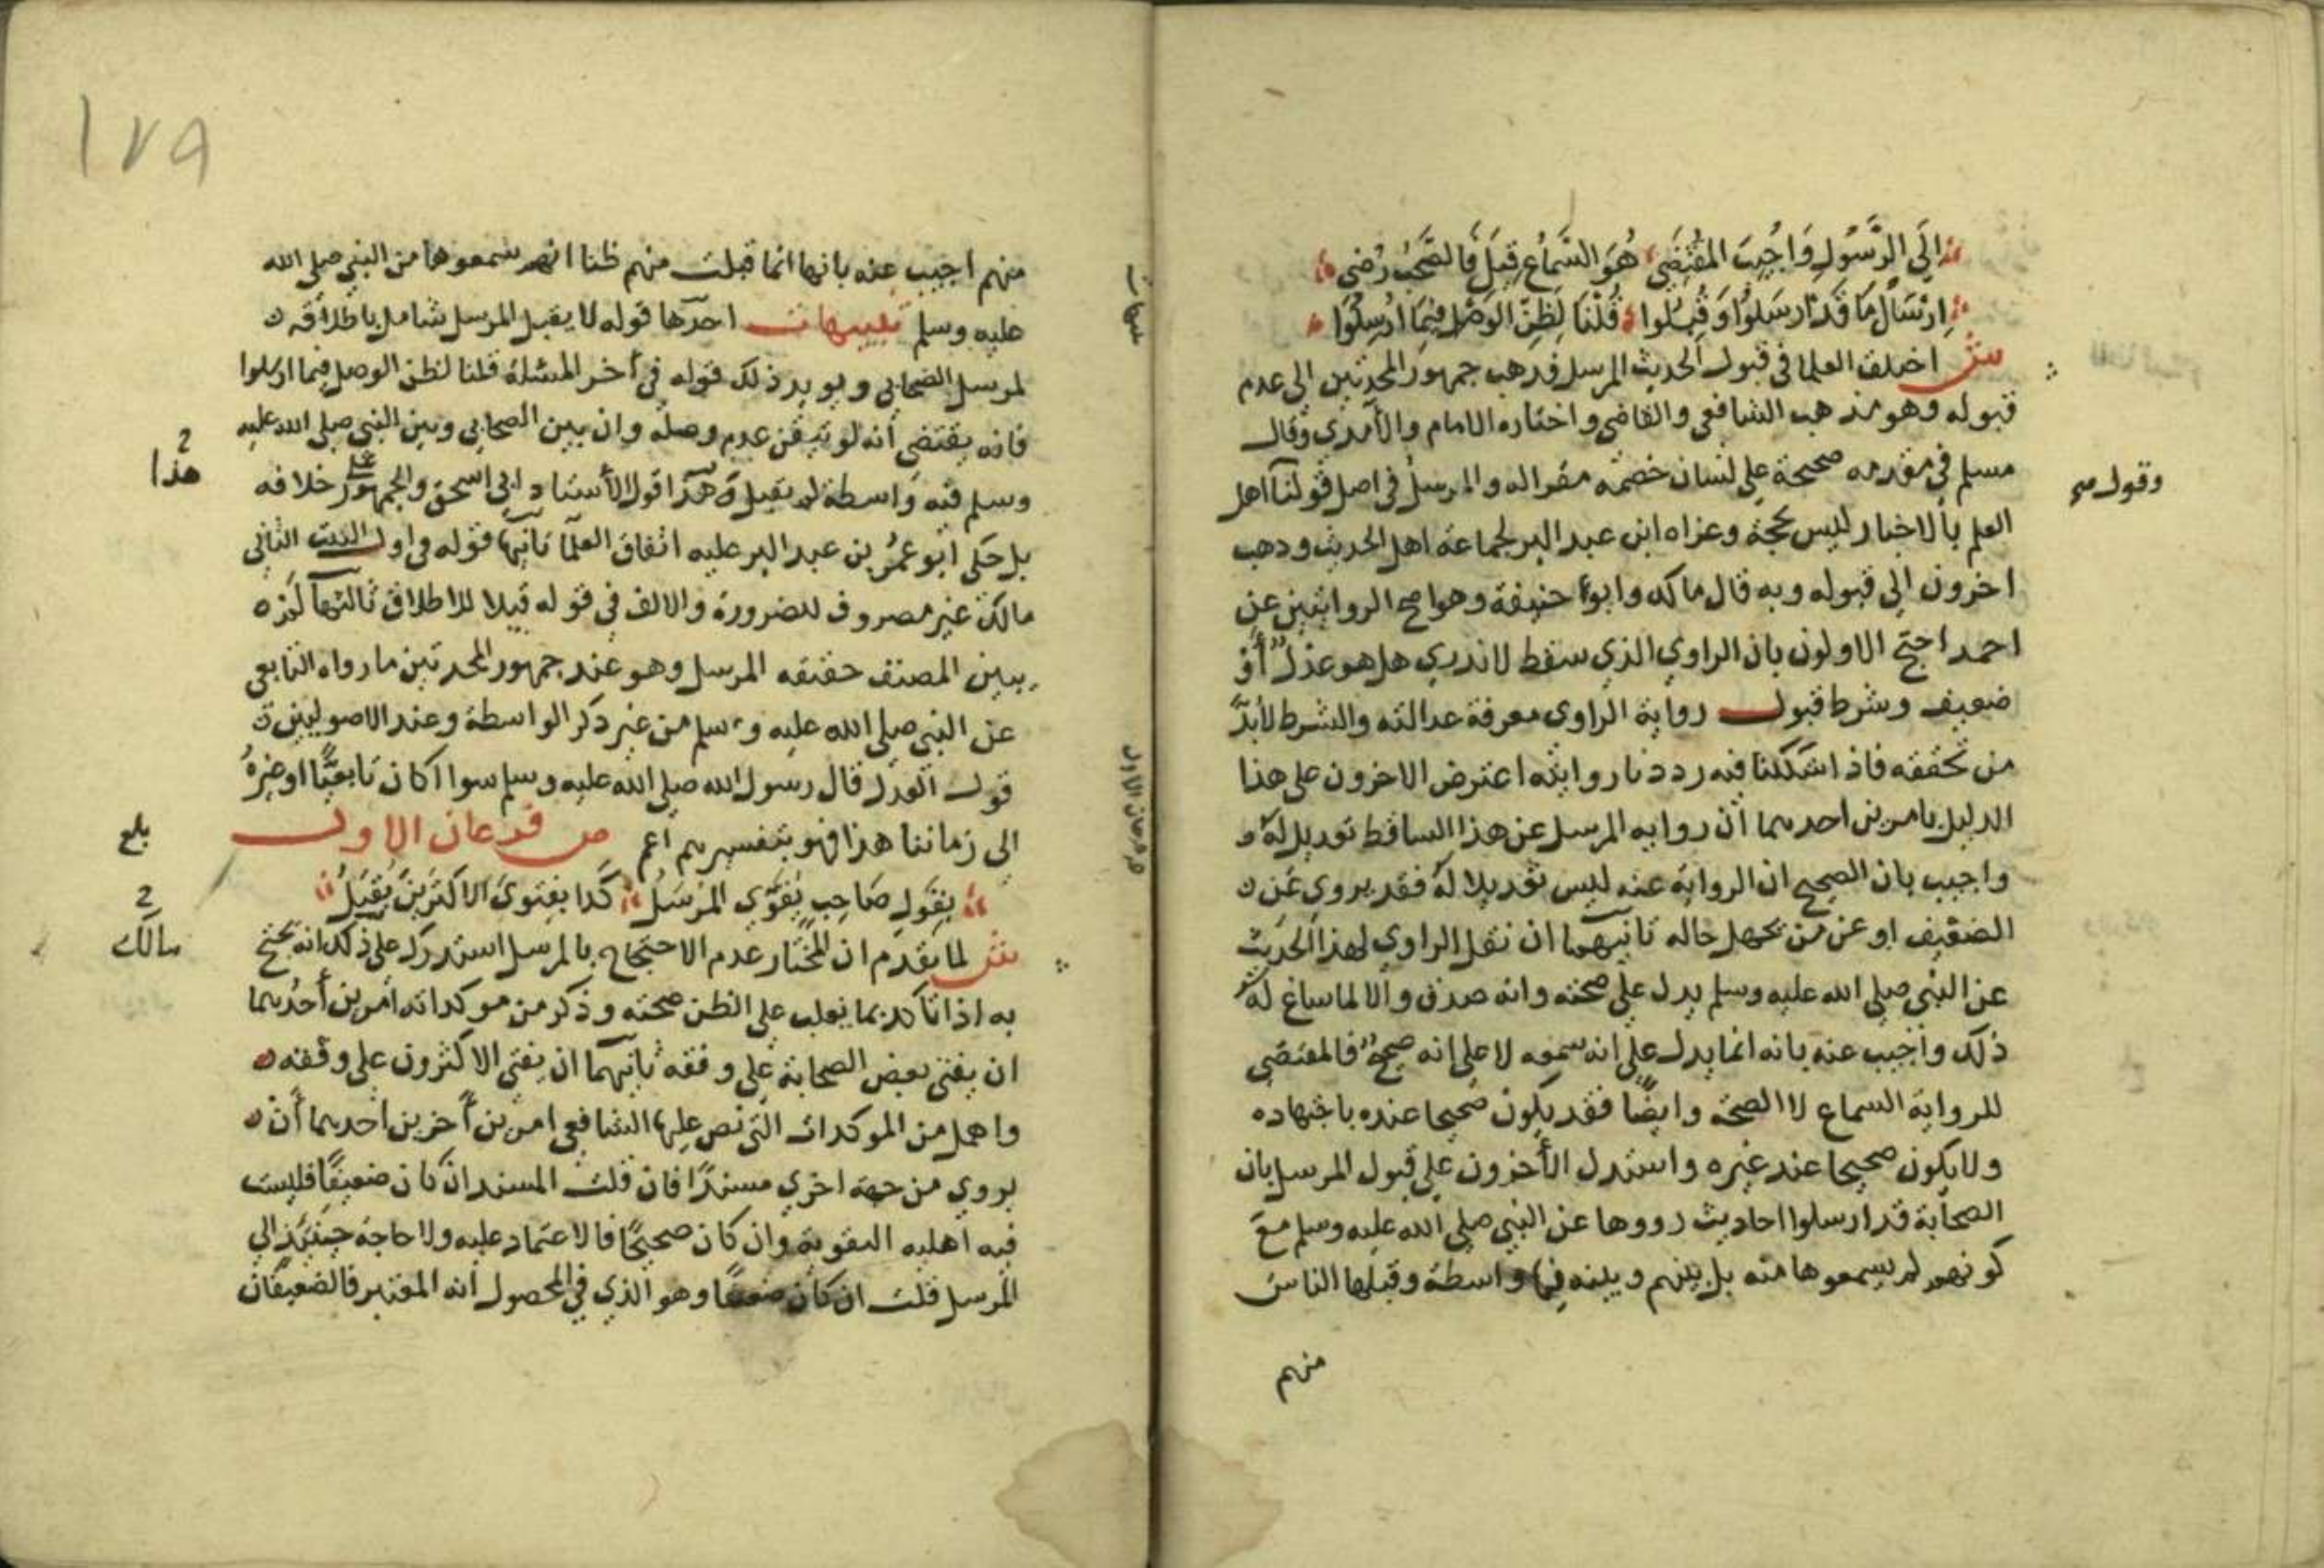 إلى الرسول وأجيب المقتضي هو السماع قيل فالصحب رضي
إرسال ما قد أرسلوا وقبلوا قلنا لظن الوصل فيما أرسلوا
ش اختلف العلما في قبول الحديث المرسل فذهب جمهور المحدثين الى عدم
قبوله وهو مذهب الشافعي والقاضي واختاره الامام والآمدي وقال
مسلم في مقدمه صحيحة على لسان خصمه مقرا له والمرسل في اصل قولنا اهل
وقول صح
العلم بالاخبار ليس بحجة وعزاه ابن عبد البر لجماعة اهل الحديث وذهب
اخرون الى قبوله وبه قال مالك وابو حنيفة وهو اصح الروايتين عن
احمد احتج الاولون بان الراوي الذي سقط لا ندري هل هو عدل أو
ضعيف وشرط قبول رواية الراوي معرفة عدالته والشرط لابد
من تحققه فاذا شككنا فيه رددنا روايته اعترض الاخرون على هذا
الدليل بامرين احدهما أن رواية المرسل عن هذا الساقط تعديل له و
واجيب بان الصحيح ان الرواية عنه ليس تعديلا له فقد يروي عن
الضعيف او عن من يجهل حاله ثانيهما ان نقل الراوي لهذا الحديث
عن النبي صلى الله عليه وسلم يدل على صحته وانه صدق والا لما ساغ له
ذلك واجيب عنه بانه انما يدل على انه سمعه لا على انه صحيح فالمقتضي
للرواية السماع لا الصحة وايضا فقد يكون صحيحا عنده باجتهاده
ولا يكون صحيحا عند غيره واستدل الأخرون على قبول المرسل بان
الصحابة قد ارسلوا احاديث رووها عن النبي صلى الله عليه وسلم مع
كونهم لم يسمعوها منه بل بينهم وبينه فيها واسطة وقبلها الناس
منهم
١٧٩
منهم اجيب عنه بانها انما قبلت منهم ظنا انهم سمعوها من النبي صلى الله
عليه وسلم تنبيهات احدها قوله لا يقبل المرسل شامل باطلاقه
تنبيهات
لمرسل الصحابي ويويد ذلك قوله في أخر المسئلة قلنا لظن الوصل فيما ارسلوا
فانه يقتضي أنه لو تيقن عدم وصله وان بين الصحابي وبين النبي صلى الله عليه
وسلم فيه واسطة لم يقبل وهذا قول الأستاد ابي اسحق والجمهور على خلافه
هذا
بل حكى ابو عمر بن عبد البر عليه اتفاق العلما ثانيها قوله في اول البيت الثاني
مالك غير مصروف للضرورة والالف في قوله قبلا للاطلاق ثالثها لم
يبين المصنف حقيقه المرسل وهو عند جمهور المحدثين ما رواه التابعي
عن النبي صلى الله عليه وسلم من غير ذكر الواسطة وعند الاصوليين
قول العدل قال رسول الله صلى الله عليه وسلم سوا اكان تابعيا او غيره
الى زماننا هذا فهو بتفسيرهم اعم ص فرعان الاول
بلغ
فرعان الاول
بقول صاحب يقوي المرسل كذا بفتوى الاكثرين يقبل
ش لما تقدم ان المختار عدم الاحتجاج بالمرسل استدرك على ذلك انه يحتج
مالك
به اذا تاكد بما يغلب على الظن صحته وذكر من موكداته أمرين أحدهما
ان يفتي بعض الصحابة على وفقه ثانيهما ان يفتي الاكثرون على وفقه
واهمل من الموكدات التي نص عليها الشافعي امرين أخرين احدهما أن
يروي من جهة اخري مسندا فان قلت المسند ان كان ضعيفا فليست
فيه اهليه التقوية وان كان صحيحا فالاعتماد عليه ولا حاجة حينئذ الي
المرسل قلت ان كان ضعيفا وهو الذي في المحصول أنه المعتبر فالضعيفان